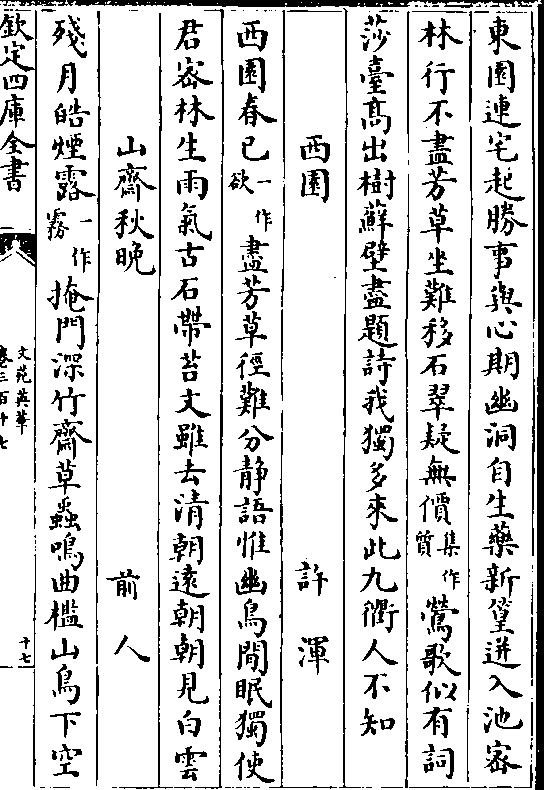 東園連宅起勝事與心期幽洞自生藥新篁迸入池密
林行不盡芳草坐難移石翠疑無價集作質鶯歌似有詞
莎臺髙出樹蘚壁盡題詩我獨多來此九衢人不知
西園 許渾
西園春已一作欲盡芳草徑難分静語惟幽鳥閒眠獨使
君密林生雨氣古石帶苔文雖去清朝遠朝朝見白雲
山齋秋晚 前人
殘月皓煙露一作霧掩門深竹齋草蟲鳴曲檻山鳥下空
欽定四庫全書
文苑英華
卷三百十七
十七